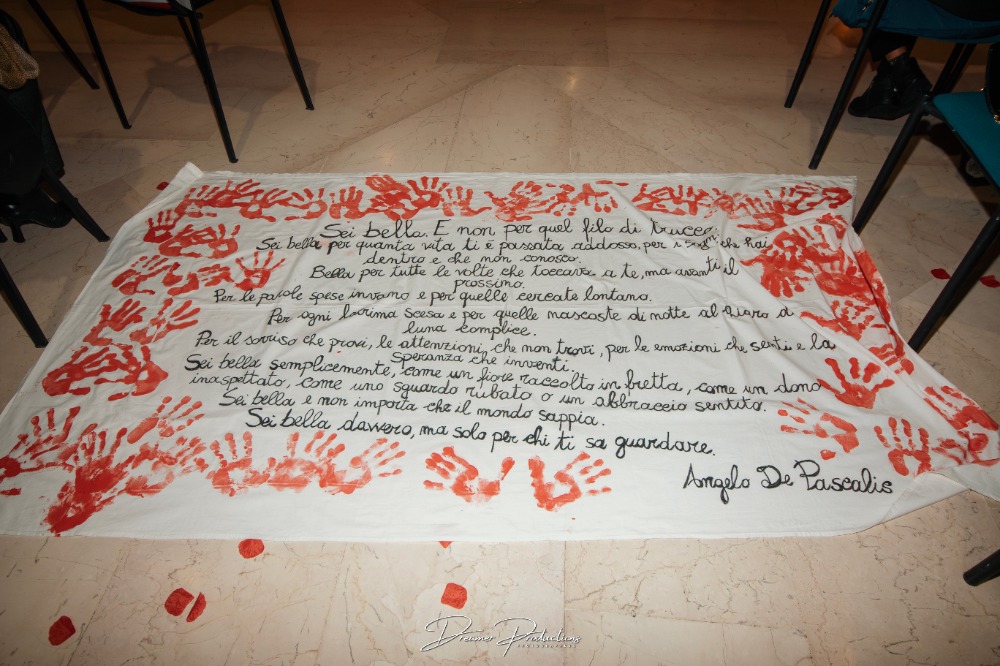 Sei bella. E non per quel filo di trucco.
Sei bella per quanta vita ti è passata addosso, per i sogni che hai
dentro e che non conosco.
Bella per tutte le volte che toccava a te, ma avanti il
prossimo.
Per le parole spese invano e per quelle cercate lontano.
Per ogni lacrima scesa e per quelle nascoste di notte al chiaro di
luna complice.
Per il sorriso che provi, le attenzioni che non trovi, per le emozioni che senti e la
speranza che inventi.
Sei bella semplicemente, come un fiore raccolto in fretta, come un dono
inaspettato, come uno sguardo rubato o un abbraccio sentito.
Sei bella e non importa che il mondo sappia.
Sei bella davvero, ma solo per chi ti sa guardare.
Angelo De Pascalis
Dreamer Productions
PHOTOGRAPHER